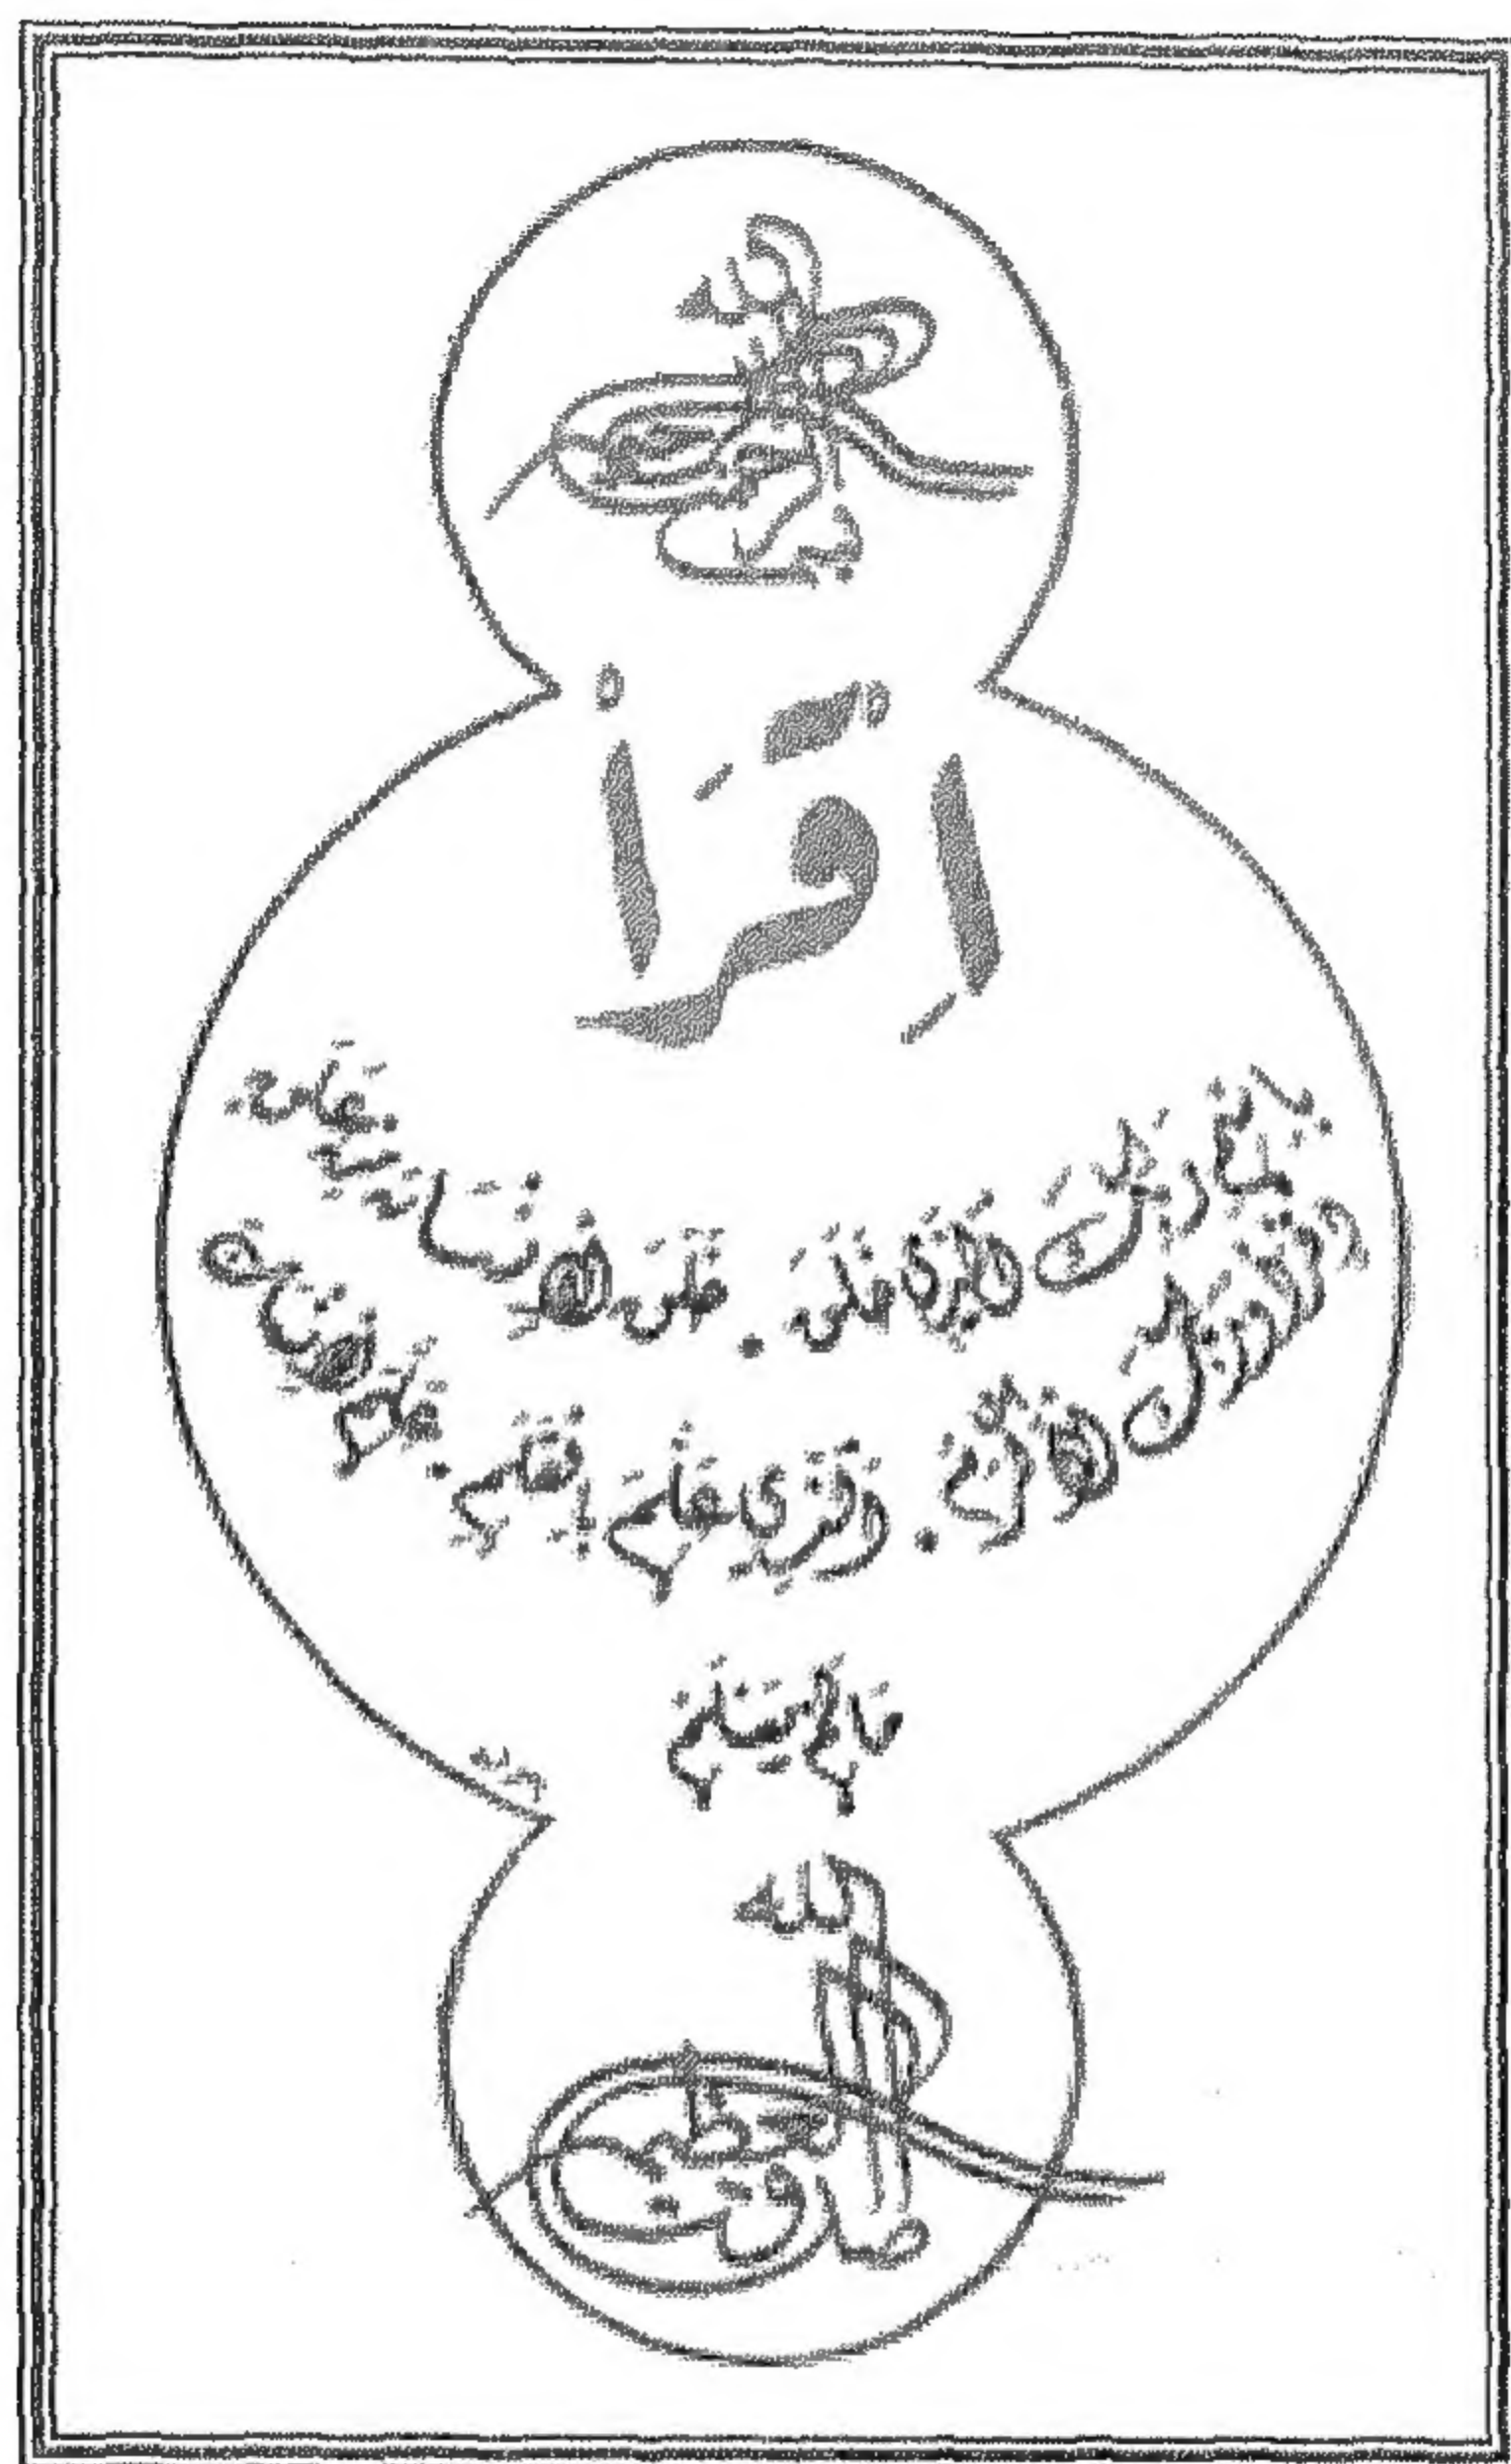 بسم الله الرحمن الرحيم
اقْرَأْ
بِاسْمِ رَبِّكَ الَّذِي خَلَقَ . خَلَقَ الْإِنْسَانَ مِنْ عَلَقٍ .
اقْرَأْ وَرَبُّكَ الْأَكْرَمُ . الَّذِي عَلَّمَ بِالْقَلَمِ . عَلَّمَ الْإِنْسَانَ
مَا لَمْ يَعْلَمْ
صدق الله العظيم